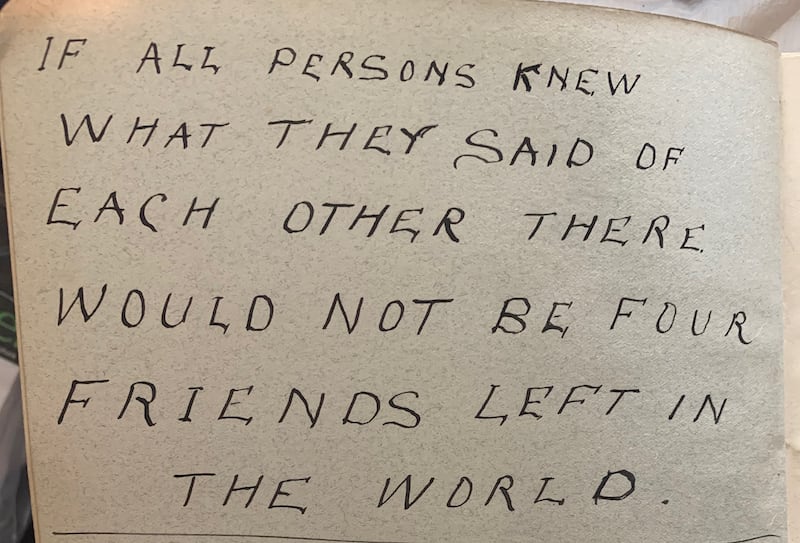 IF ALL PERSONS KNEW
WHAT THEY SAID OF
EACH OTHER THERE
WOULD NOT BE FOUR
FRIENDS LEFT IN
THE WORLD.